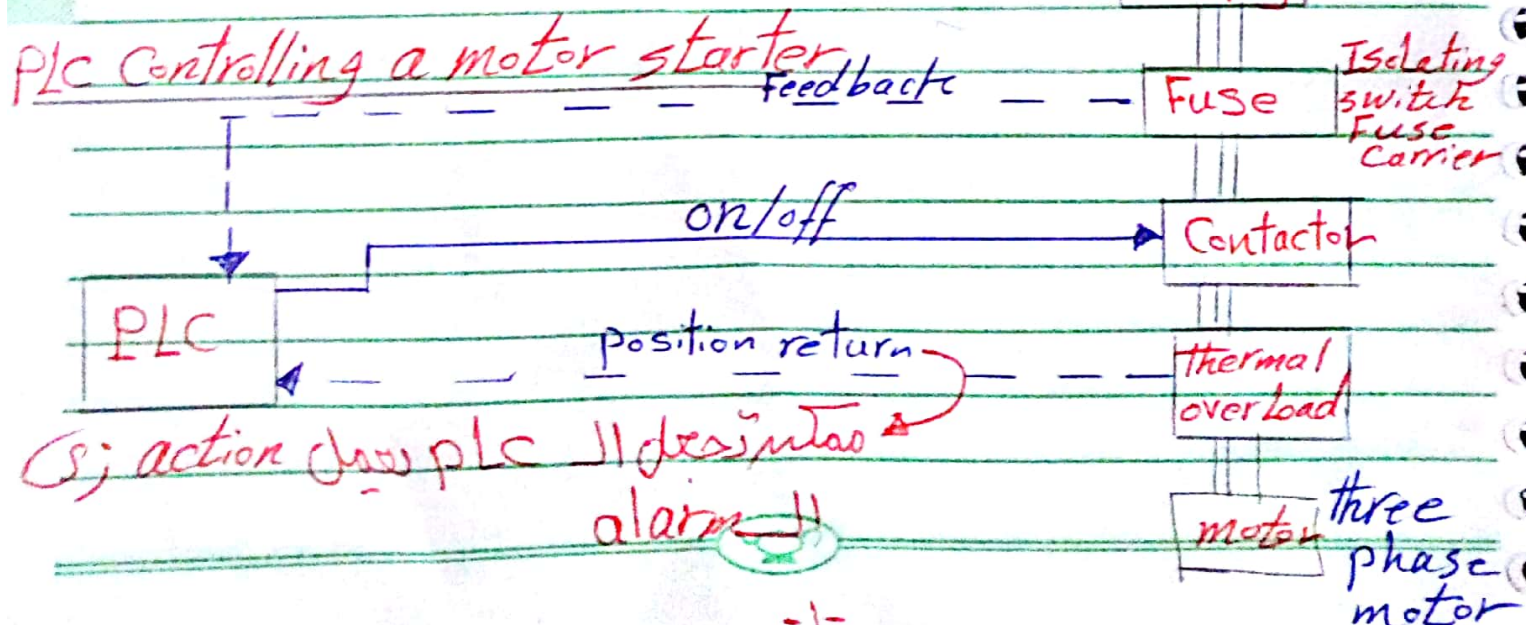 PLC Controlling a motor starter
Feedback
Fuse
Isolating
switch
Fuse
Carrier
on/off
Contactor
PLC
position return
thermal
overload
plc يعمل action زي
ال alarm
motor
three
phase
motor